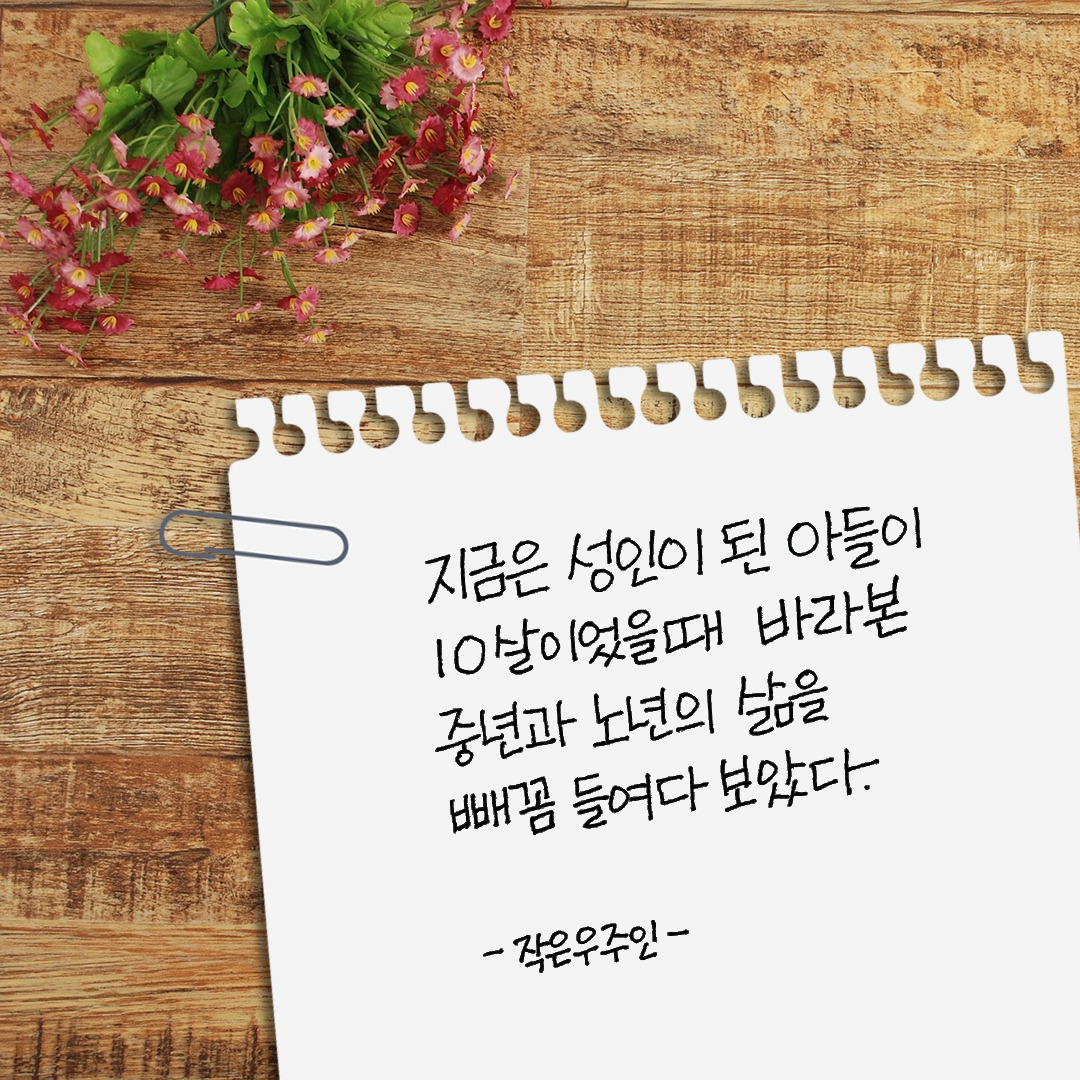 지금은 성인이 된 아들이
10살이었을때 바라본
중년과 노년의 삶을
빼꼼 들여다 보았다.
- 작은우주인 -